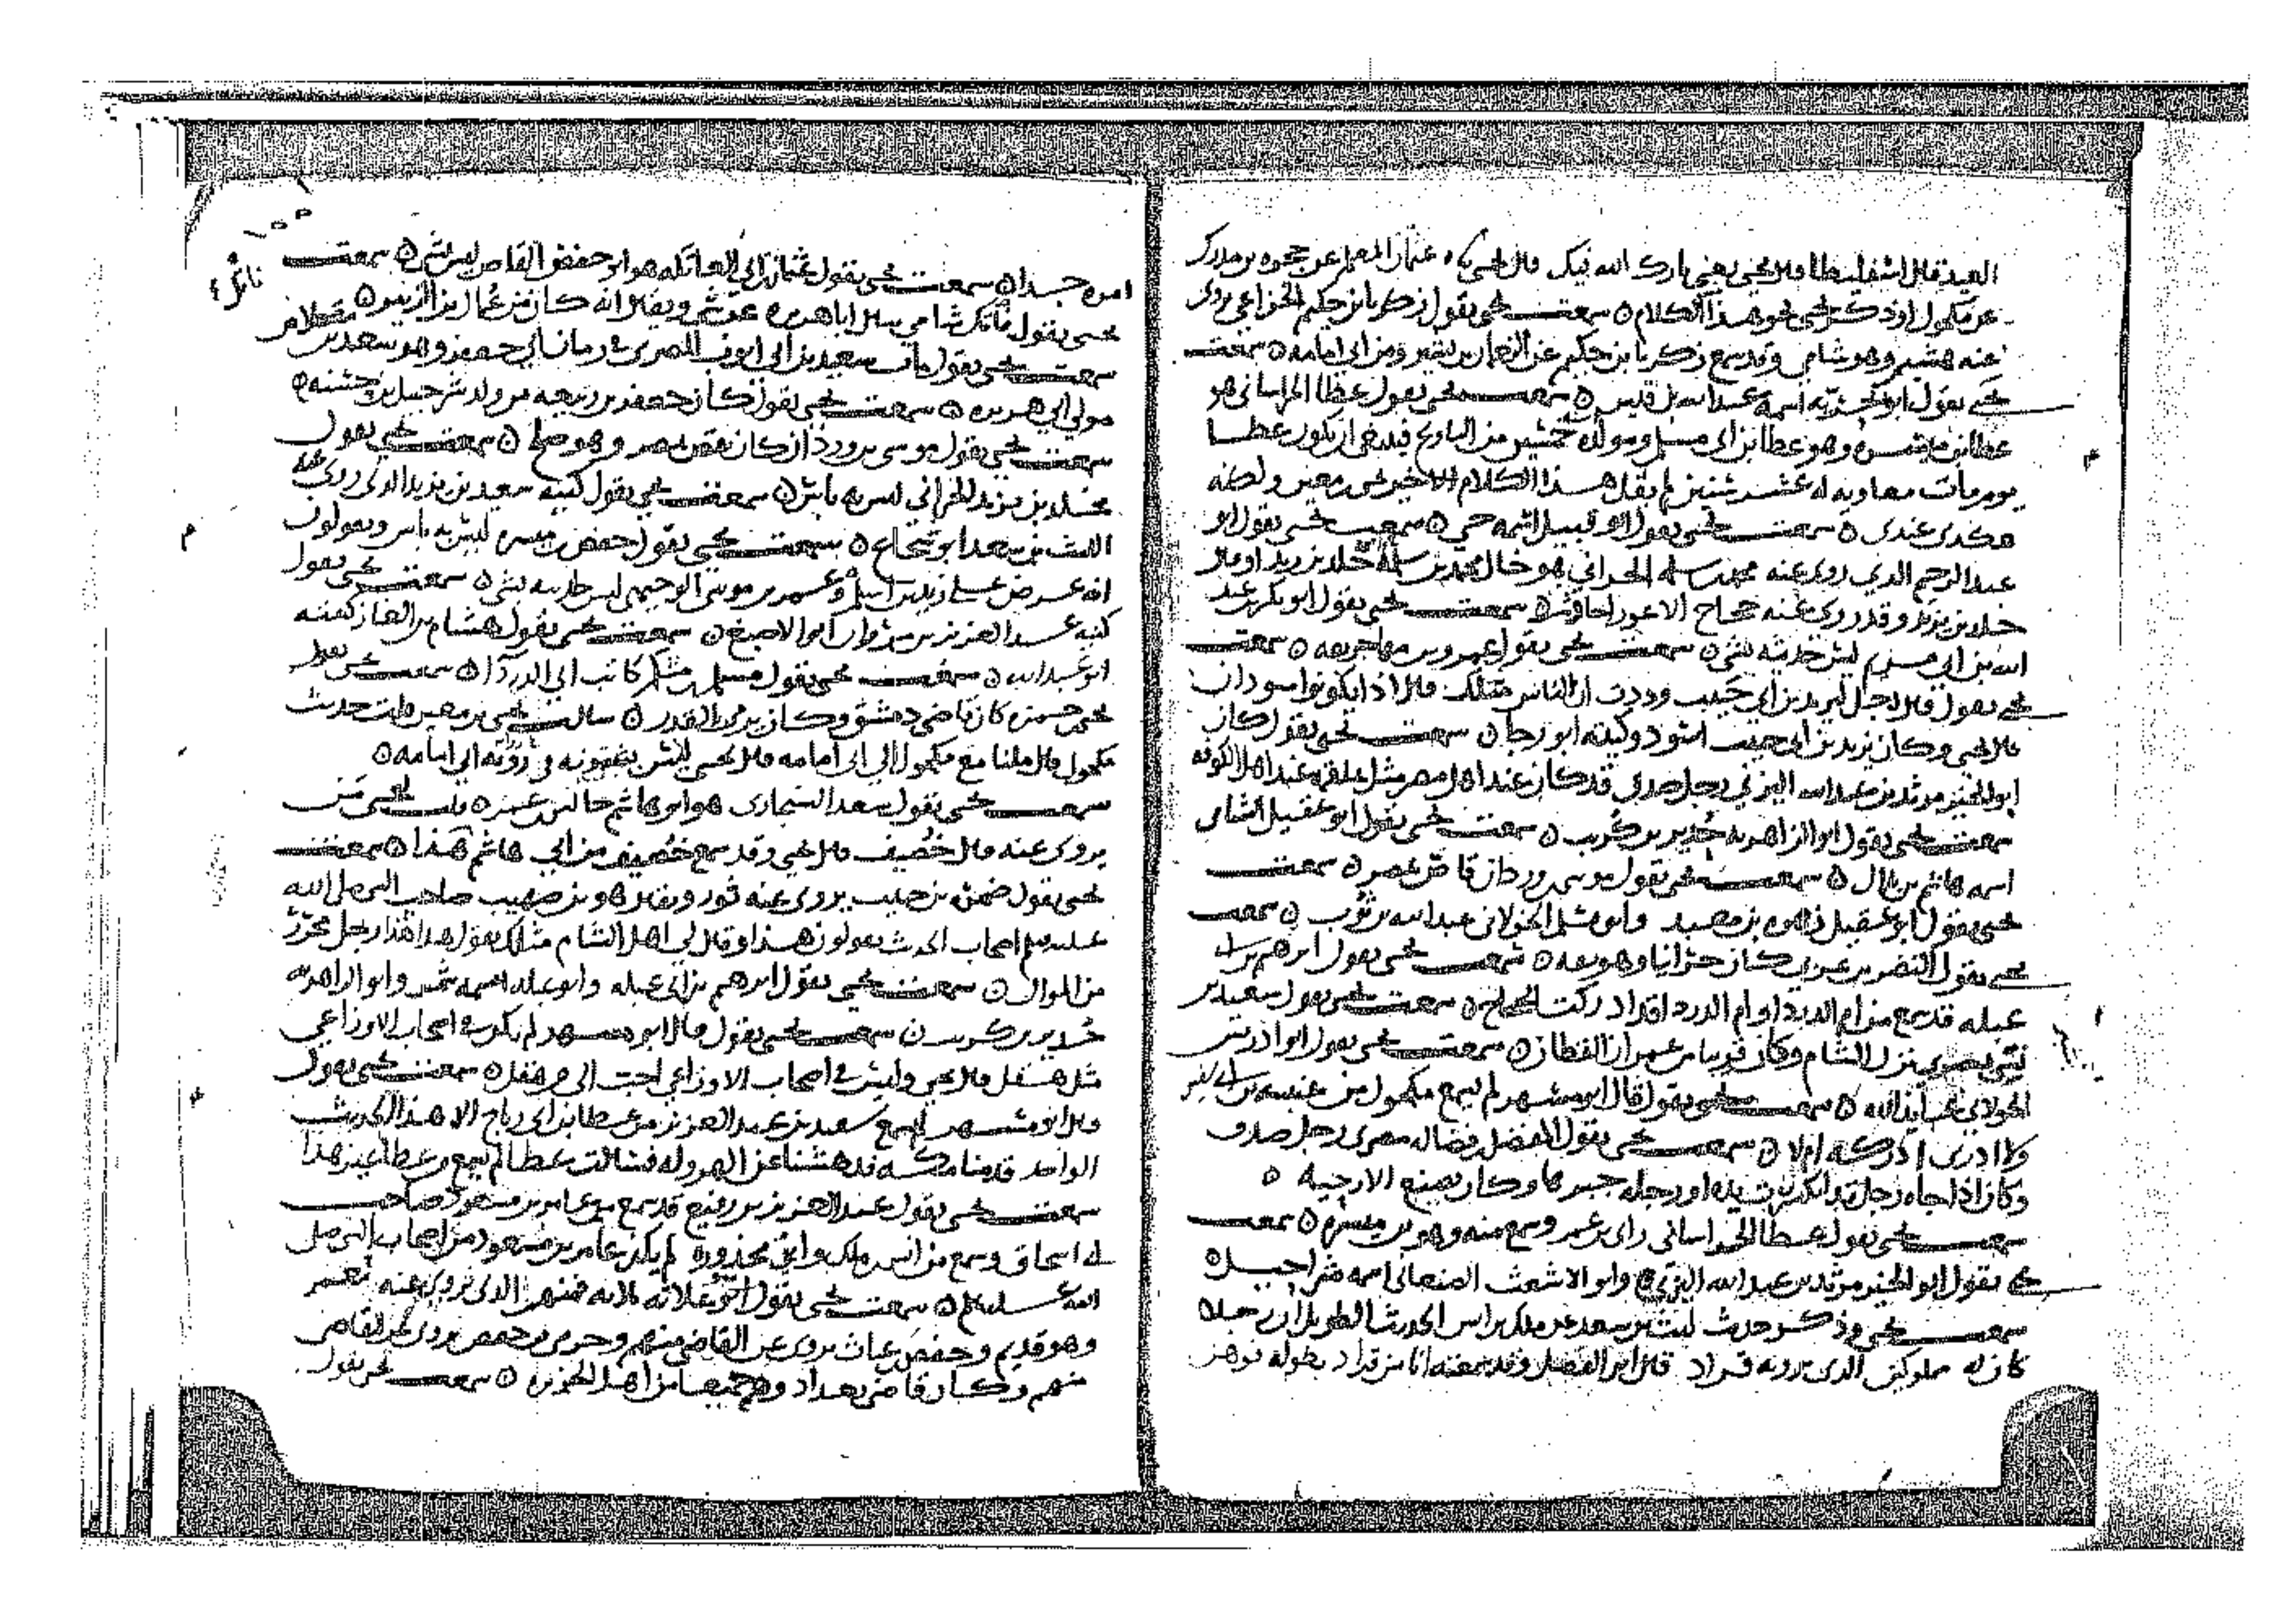 العيد قال يحيى يعني بارك الله فيك قال يحيى عثمان المعلم عن
عن مكحول او ذكر يحيى نحو هذا الكلام سمعت يحيى يقول زكريا بن حكيم الخزاعي يروي
عنه هشيم وهو شامي وقد سمع زكريا بن حكيم عن النعمان بن بشير ومن ابي امامة سمعت
يحيى يقول ابو بحرية اسمه عبد الله بن قيس سمعت يحيى يقول عطا الخراساني هو
عطا بن ميسرة وهو عطا بن ابي مسلم ومولده خمسين من التاريخ فينبغي ان يكون عطا
يوم مات معاوية له عشر سنين لم يقل هذا الكلام الاخير يحيى بن معين ولكنه
هكذى عندى سمعت يحيى يقول ابو قبيل اسمه حي سمعت يحيى يقول ابو
عبد الرحيم الذي روى عنه محمد بن سلمة الحراني هو خال محمد بن سلمة خلد بن يزيد او قال
خلد بن يزيد وقد روى عنه حجاج الاعور احاديث سمعت يحيى يقول ابو بكر بن عبد
الله بن ابي مريم ليس حديثه بشي سمعت يحيى يقول عمرو بن مهاجر ثقة سمعت
يحيى يقول قال رجل ليزيد بن ابي حبيب وددت ان الناس مثلك قال اذا يكونوا سودان
قال يحيى وكان يزيد بن ابي حبيب اسود وكنيته ابو رجا سمعت يحيى يقول كان
ابو الخير مرثد بن عبد الله اليزني رجل صدق قد كان عند اهل مصر مثل علقمة عند اهل الكوفة
سمعت يحيى يقول ابو الزاهرية حدير بن كريب سمعت يحيى يقول ابو عقيل الشامي
اسمه هاشم بن بلال سمعت يحيى يقول موسى بن وردان قاص بمصر سمعت
يحيى يقول ابو عقيل زهرة بن معبد وابو مسلم الخولاني عبد الله بن ثوب سمعت
يحيى يقول النضر بن عربي كان حرانيا وهو ثقة سمعت يحيى يقول ابرهيم بن ابي
عبلة قد سمع من ام الدردا وام الدردا قد ادركت الحجاج سمعت يحيى يقول سعيد بن
بشير بصري نزل الشام وكان قريبا من عمران القطان سمعت يحيى يقول ابو ادريس
الخولاني عايذ الله سمعت يحيى يقول قال ابو مسهر لم يسمع مكحول من عنبسة بن ابي سفين
ولا ادرى ادركه ام لا سمعت يحيى يقول المفضل بن فضالة مصرى رجل صدق
وكان اذا جاه رجل قد انكسرت يده او رجله جبرها وكان يصنع الارحية
سمعت يحيى يقول عطا الخراساني راى ابن عمر وسمع منه وهو ابن ميسرة سمعت
يحيى يقول ابو الخير مرثد بن عبد الله اليزني وابو الاشعث الصنعاني اسمه شراحيل
سمعت يحيى وذكر حديث ليث بن سعد عن ملك بن انس الحديث الطويل ان رجلا
كان له مملوكين الذي يرويه قراد قال ابو الفضل وقد سمعته انا من قراد بطوله
امره جدا سمعت يحيى يقول عثمان بن ابي العاتكة هو ابو حفص القاص ليس بشي سمعت
يحيى يقول شامي يسل ابا هريرة ويقال انه كان من عمال ابن الزبير
سمعت يحيى يقول مات سعيد بن ابي ايوب المصري في زمان ابي جعفر وهو سعيد بن مقلاص
مولى ابي هريرة سمعت يحيى يقول كان جعفر بن ربيعة من ولد شرحبيل بن حسنة
سمعت يحيى يقول موسى بن وردان كان يقص بمصر وهو صالح سمعت يحيى يقول
مخلد بن يزيد الحراني ليس به باس سمعت يحيى يقول كنية سعيد بن يزيد الذي روى عنه
الليث بن سعد ابو شجاع سمعت يحيى يقول حفص بن ميسرة ليس به باس ويقولون
انه عرض على زيد بن اسلم وعمر بن موسى الوجيهي ليس حديثه بشي سمعت يحيى يقول
كنية عبد العزيز بن مروان ابو الاصبغ سمعت يحيى يقول هشام بن الغاز كنيته
ابو عبد الله سمعت يحيى يقول مسلم بن مشكم كاتب ابي الدردا سمعت يحيى يقول
يحيى بن حمزة كان قاضي دمشق وكان يرمى بالقدر سالت يحيى بن معين قلت حديث
مكحول قال ملنا مع مكحول الى ابي امامة قال يحيى ليس يثبتونه في رؤيته ابي امامة
سمعت يحيى يقول سعد السنجاري هو ابو هاشم قلت ليحيى من
يروى عنه قال خصيف قال يحيى وقد سمع خصيف من ابي هاشم هذا سمعت
يحيى يقول ضمرة بن حبيب يروى عنه ثور ويقال هو ابن صهيب صاحب النبي صلى الله
عليه وسلم اصحاب الحديث يقولون هذا وقال لي اهل الشام مثلك يقول هذا هذا رجل
من الموالي سمعت يحيى يقول ابرهيم بن ابي عبلة وابو عبلة اسمه شمر وابو الزاهرية
حدير بن كريب سمعت يحيى يقول قال ابو مسهر لم يكن في اصحاب الاوزاعي
مثل هقل قال يحيى وليس في اصحاب الاوزاعي احب الي من هقل سمعت يحيى يقول
قال ابو مسهر لم يسمع سعيد بن عبد العزيز من عطا بن ابي رباح الا هذا الحديث
الواحد قدمنا مكة قد هشنا عن الهرولة فسالت عطا لم يسمع من عطا غير هذا
سمعت يحيى يقول عبد العزيز بن رفيع قد سمع من عامر بن مسعود صاحب
ابي اسحاق وسمع من انس بن ملك وابن ابي محذورة لم يكن عامر بن مسعود من اصحاب النبي صلى
الله عليه وسلم سمعت يحيى يقول ثلاثة فمنهم الذي يروى عنه معمر
وهو قديم وحفص بن غياث يروى عن القاضي منهم وحرمي بن حفص يروى عن القاضي
منهم وكان قاضي بغداد وهم جميعا من اهل الجزيرة سمعت يحيى يقول